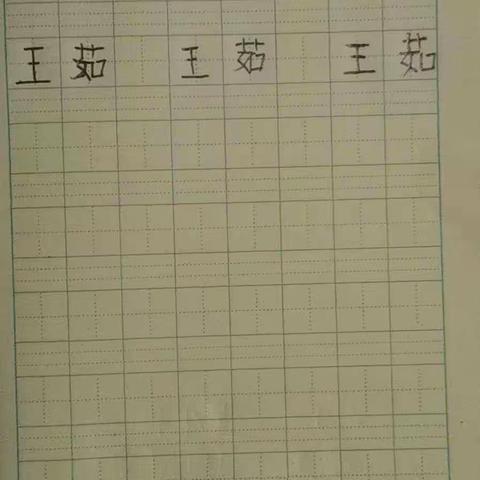 王茹 王茹 王茹